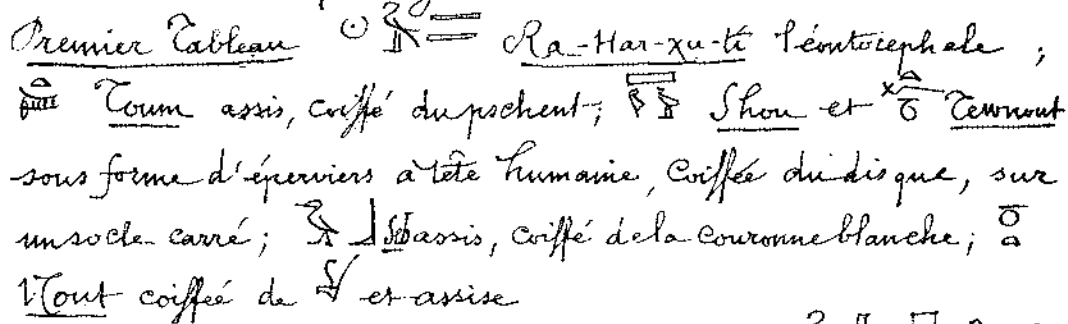 Premier Tableau Ra-Har-xu-ti léontocéphale ;
Toum assis, coiffé du pschent ; Shou et Tewnout
sous forme d'éperviers à tête humaine, coiffée du disque, sur
un socle carré ; assis, coiffé de la couronne blanche ;
Nout coiffée de et assise